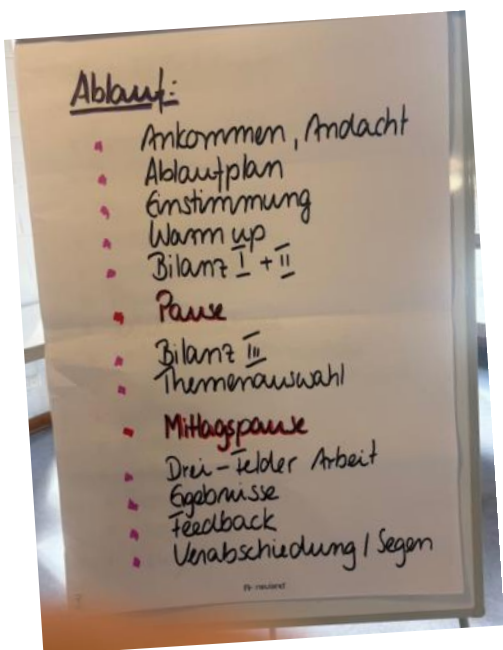 Ablauf:
Ankommen, Andacht
Ablaufplan
Einstimmung
Warm up
Bilanz I + II
Pause
Bilanz III
Themenauswahl
Mittagspause
Drei-Felder Arbeit
Ergebnisse
Feedback
Verabschiedung / Segen
neuland